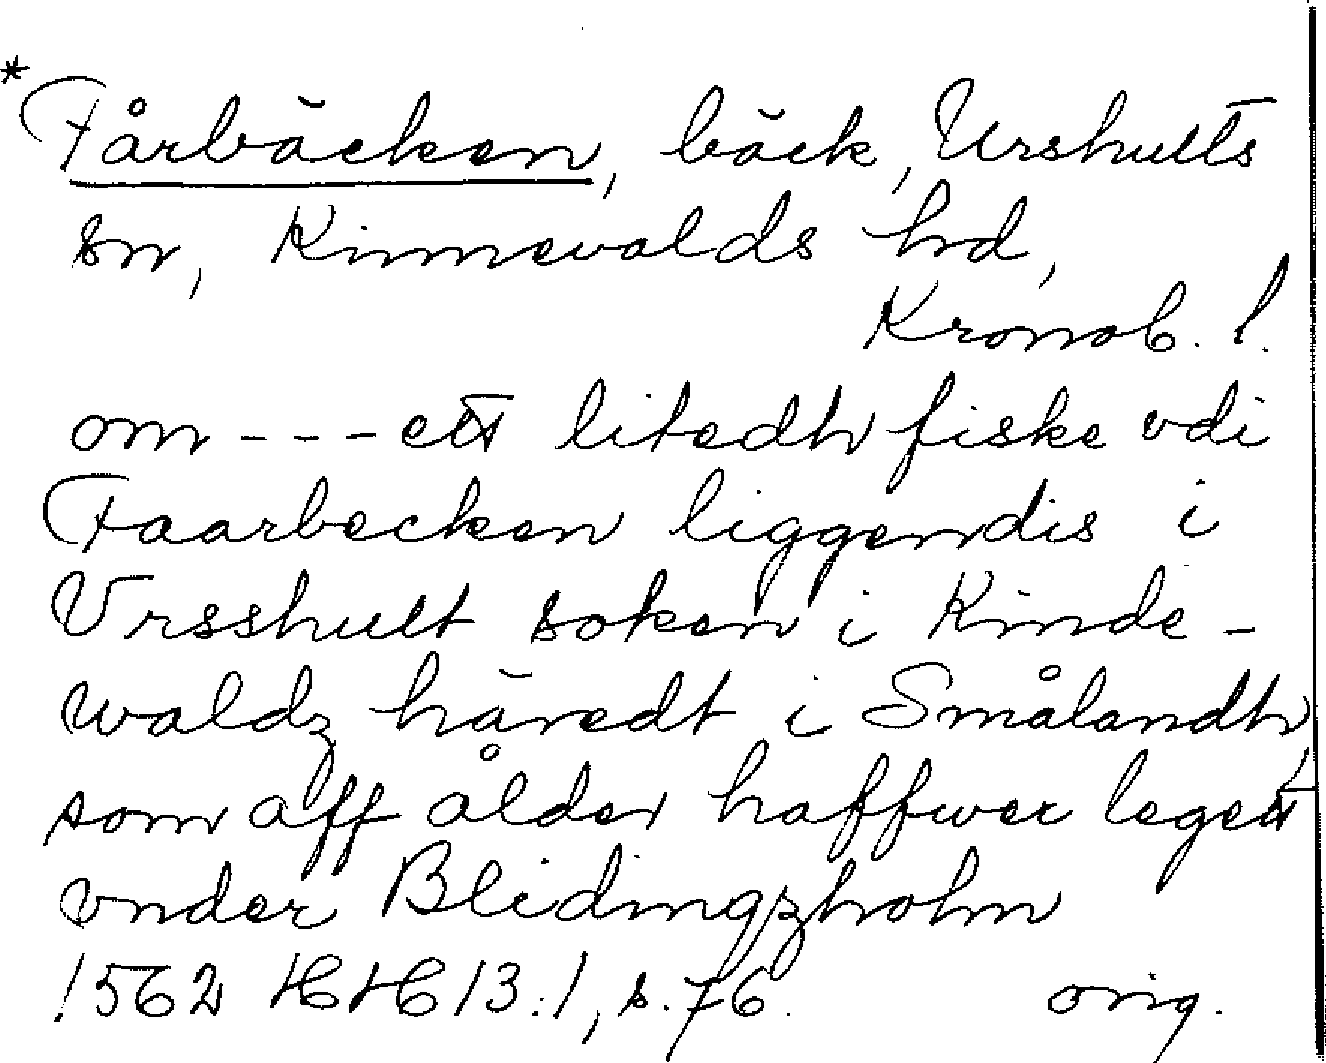 * Fårbäcken, bäck, Urshults
sn, Kinnevalds hd,
Kronob. l.
om - - - ett litedh fiske vdi
Faarbecken liggendis i
Vrsshult soken i Kinde-
waldz häredt i Smålandh,
som aff ålder haffwer legett
vnder Blidingzholm
1562 HH 13:1, s. 76. orig.